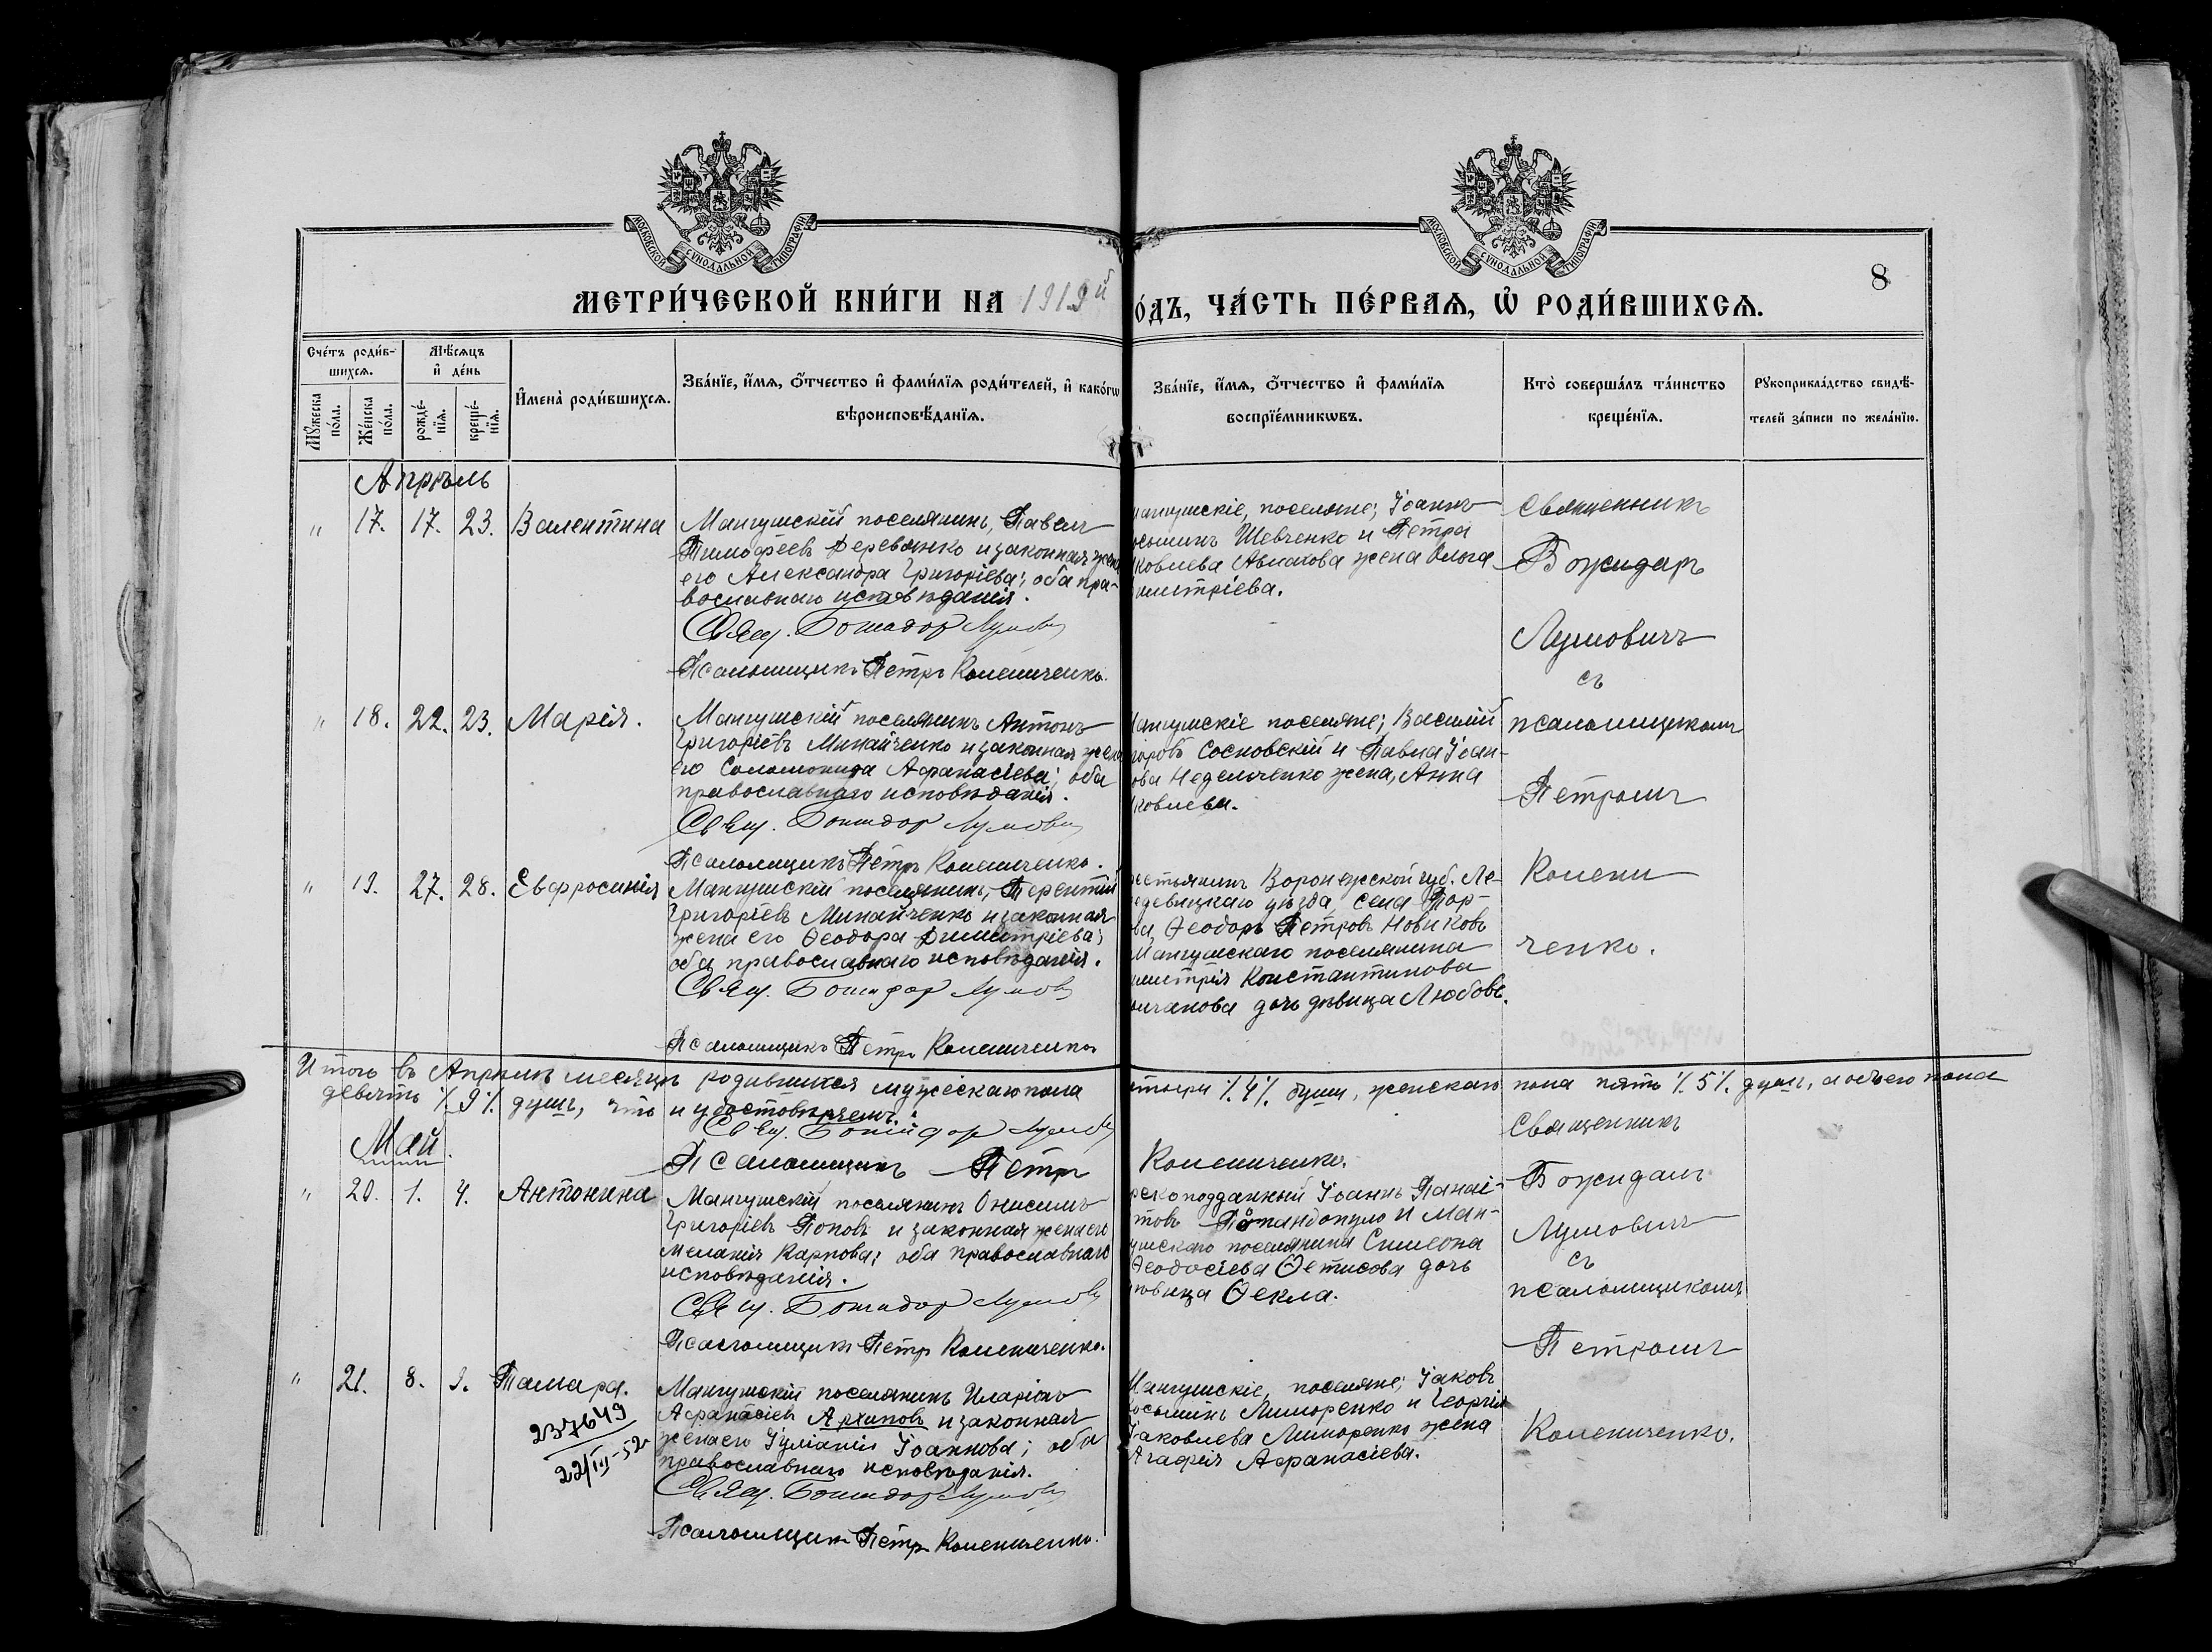 МОСКОВСКОЙ СѴНОДАЛЬНОЙ ТИПОГРАФІИ
МОСКОВСКОЙ СѴНОДАЛЬНОЙ ТИПОГРАФІИ
8
МЕТРИ́ЧЕСКОЙ КНИ́ГИ НА 1919й
О́ДЪ, ЧА́СТЬ ПЕ́РВАѦ, Ѡ҆ РОДИ́ВШИХСѦ.
Сче́тъ роди́в-
шихсѧ.
Мꙋ́жеска по́ла.
Же́нска по́ла.
Мѣ́сѧцъ
и҆ де́нь
рожде́-
нїѧ.
креще́-
нїѧ.
И҆мена̀ роди́вшихсѧ.
Зва́нїе, и҆́мѧ, ѻ҆́тчество и҆ фами́лїѧ роди́телей, и҆ како́гѡ
вѣроисповѣ́данїѧ.
Зва́нїе, и҆́мѧ, ѻ҆́тчество и҆ фами́лїѧ
воспрїе́мникѡвъ.
Кто̀ соверша́лъ та́инство
креще́нїѧ.
Рꙋкоприкла́дство свидѣ́-
телей за́писи по жела́нїю.
Апрѣль
" 17. 17. 23. Валентина
Мангушскій поселянинъ, Павелъ
Тимофеевъ Деревянко и законная жена
его Александра Григоріева; оба пра-
вославнаго исповѣданія.
Свящ. Божидар Лумови
Псаломщикъ Петръ Колениченко.
ангушскіе, поселяне; Іоаннъ
Шевченко и Петра
ковлева жена Ольга
митріева.
Священникъ
Божидаръ
Лумовичъ
съ
псаломщикомъ
Петромъ
Колени
ченко.
" 18. 22. 23. Марія.
Мангушскій поселянинъ Антонъ
Григоріевъ Минайченко и законная жена
его Соломонида Афанасіева; оба
православнаго исповѣданія.
Свящ. Божидор Лумови
Псаломщикъ Петръ Колениченко.
ангушскіе поселяне; Василій
горовъ Сосновскій и Павла Іоан-
ова Неделченко жена, Анна
ковлева.
" 19. 27. 28. Евфросинія
Мангушскій поселянинъ, Терентій
Григоріевъ Минайченко и законная
жена его Ѳеодора Димитріева;
оба православнаго исповѣданія.
Свящ. Божидор Лумови
Псаломщикъ Петръ Колениченко
рестьянинъ Воронежской губ.
уѣзда, села
Ѳеодоръ Петровъ Новиковъ
Мангушскаго поселянина
митрія Константинова
дочь дѣвица Любовь.
Итого въ Апрѣлѣ месяцѣ родившихся мужескаго пола
етыри ٪4٪ души, женскаго пола пять ٪5٪ душъ, а обоего пола
девять ٪9٪ душъ, что и удостовѣряемъ:
Свящ. Божидор Лумови
Псаломщикъ Петръ
Колениченко.
Май.
" 20. 1. 4. Антонина
Мангушскій поселянинъ Онисимъ
Григоріевъ Поповъ и законная жена его
Меланія Карпова; оба православнаго
исповѣданія.
Свящ. Божидор Лумови
Псаломщикъ Петръ Колениченко.
реко подданный Іоаннъ Панаі-
товъ и Ман-
ушскаго поселянина Симеона
Ѳеодосіева Ѳетисова дочь
ѣвица Ѳекла.
Священникъ
Божидаръ
Лумовичъ
съ
псаломщикомъ
Петромъ
Колениченко.
" 21. 8. 9. Тамара.
237649
22/III-52г
Мангушскій поселянинъ Иларіонъ
Афанасіевъ Архиповъ и законная
жена его Іуліанія Іоаннова; оба
православнаго исповѣданія.
Свящ. Божидор Лумови
Псаломщикъ Петръ Колениченко.
Мангушскіе, поселяне; Іаковъ
Лиморенко и Георгія
Іаковлева Лиморенко жена
Агафія Афанасіева.